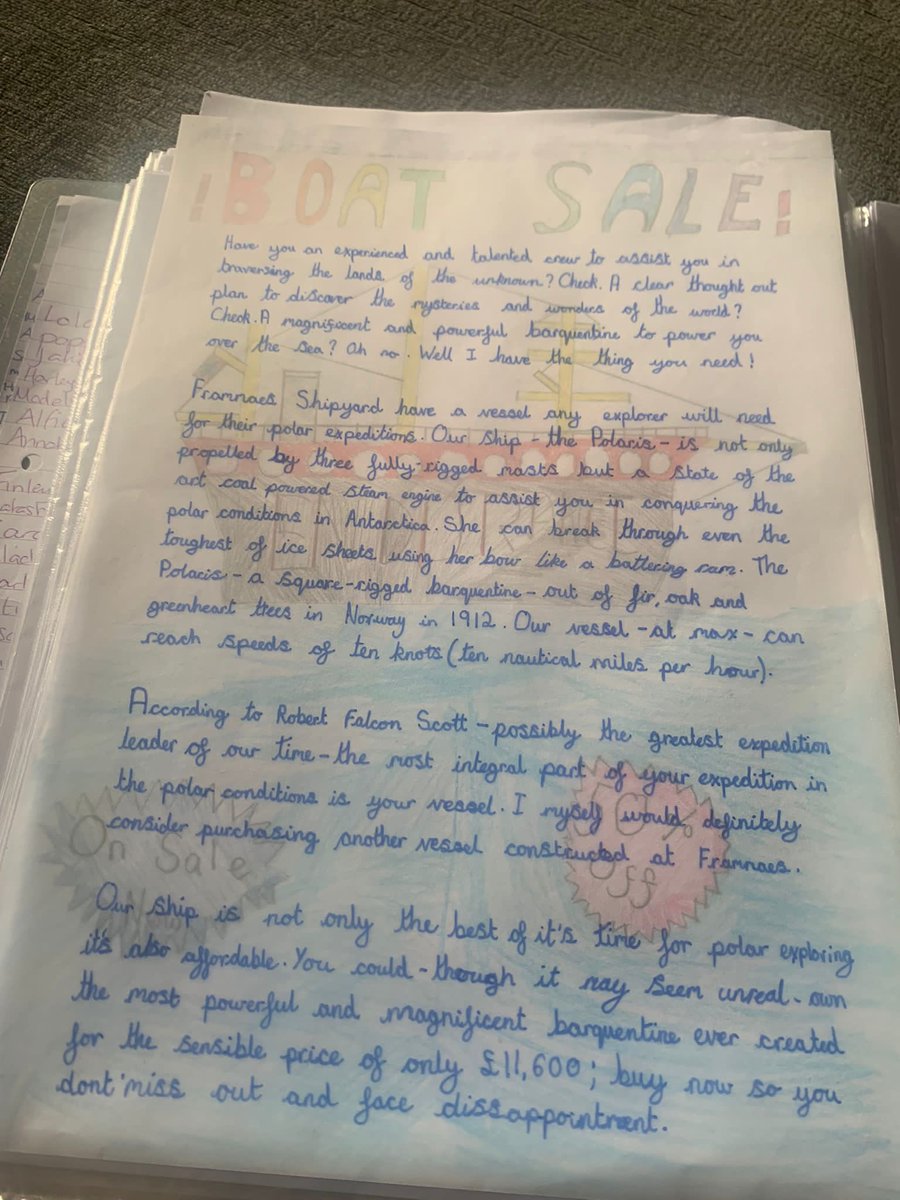 !BOAT SALE!
Have you an experienced and talented crew to assist you in
traversing the lands of the unknown? Check. A clear thought out
plan to discover the mysteries and wonders of the world?
Check. A magnificent and powerful barquentine to power you
over the sea? Oh no. Well I have the thing you need!
Framnaes Shipyard have a vessel any explorer will need
for their polar expeditions. Our ship - the Polaris - is not only
propelled by three fully-rigged masts but a state of the
art coal powered steam engine to assist you in conquering the
polar conditions in Antarctica. She can break through even the
toughest of ice sheets using her bow like a battering ram. The
Polaris - a square-rigged barquentine - out of fir, oak and
greenheart trees in Norway in 1912. Our vessel - at max - can
reach speeds of ten knots (ten nautical miles per hour).
According to Robert Falcon Scott - possibly the greatest expedition
leader of our time - the most integral part of your expedition in
the polar conditions is your vessel. I myself would definitely
consider purchasing another vessel constructed at Framnaes.
On Sale
50%
Off
Our ship is not only the best of it's time for polar exploring
it's also affordable. You could - though it may seem unreal - own
the most powerful and magnificent barquentine ever created
for the sensible price of only £11,600; buy now so you
dont' miss out and face dissappointment.